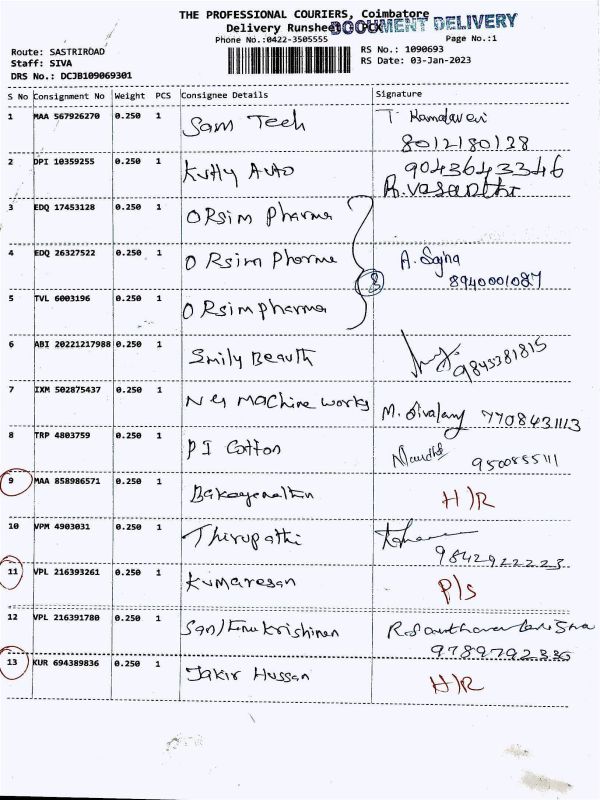 THE PROFESSIONAL COURIERS, Coimbatore
DOCUMENT DELIVERY
Delivery Runsheet
Phone No.:0422-3505555
Page No.:1
Route: SASTRIROAD
Staff: SIVA
DRS No.: DCJB109069301
RS No.: 1090693
RS Date: 03-Jan-2023
S No Consignment No Weight PCS Consignee Details Signature
1 MAA 567926270 0.250 1 Sam Tech T. Kamalaveni
8012180128
2 DPI 10359255 0.250 1 Kutty Auto 9043643346
R. Vasanthi
3 EDQ 17453128 0.250 1 ORsim Pharma
4 EDQ 26327522 0.250 1 ORsim Pharma 3 A. Sajna
8940001087
5 TVL 6003196 0.250 1 ORsim pharma
6 ABI 20221217988 0.250 1 Smily Beauth 9843381815
7 IXM 502875437 0.250 1 N G Machine works M. 7708431113
8 TRP 4803759 0.250 1 PI Cotton 9500855111
9 MAA 858986571 0.250 1 H/R
10 VPM 4903031 0.250 1 Thirupathi
9842922223
11 VPL 216393261 0.250 1 Kumaresan P/S
12 VPL 216391780 0.250 1
9789792336
13 KUR 694389836 0.250 1 Jakir Hussan H/R